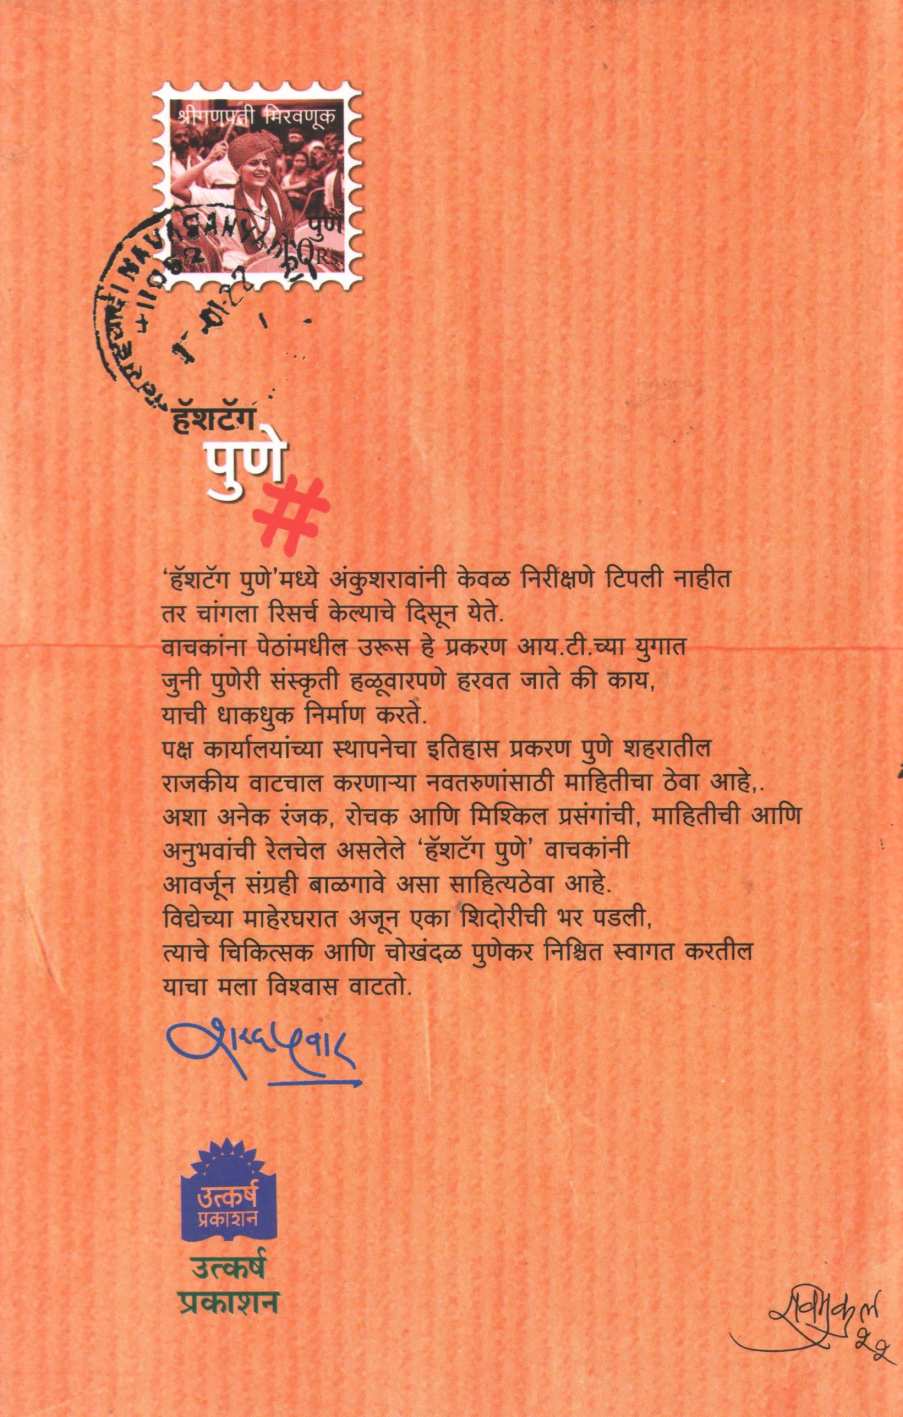 श्रीगणपती मिरवणूक
पुणे
हॅशटॅग
पुणे
#
‘हॅशटॅग पुणे’मध्ये अंकुशरावांनी केवळ निरीक्षणे टिपली नाहीत
तर चांगला रिसर्च केल्याचे दिसून येते.
वाचकांना पेठांमधील उरूस हे प्रकरण आय.टी.च्या युगात
जुनी पुणेरी संस्कृती हळूवारपणे हरवत जाते की काय,
याची धाकधुक निर्माण करते.
पक्ष कार्यालयांच्या स्थापनेचा इतिहास प्रकरण पुणे शहरातील
राजकीय वाटचाल करणाऱ्या नवतरुणांसाठी माहितीचा ठेवा आहे,.
अशा अनेक रंजक, रोचक आणि मिश्किल प्रसंगांची, माहितीची आणि
अनुभवांची रेलचेल असलेले ‘हॅशटॅग पुणे’ वाचकांनी
आवर्जून संग्रही बाळगावे असा साहित्यठेवा आहे.
विद्येच्या माहेरघरात अजून एका शिदोरीची भर पडली,
त्याचे चिकित्सक आणि चोखंदळ पुणेकर निश्चित स्वागत करतील
याचा मला विश्वास वाटतो.
शरद पवार
उत्कर्ष
प्रकाशन
उत्कर्ष
प्रकाशन
रविमुकुल
२२